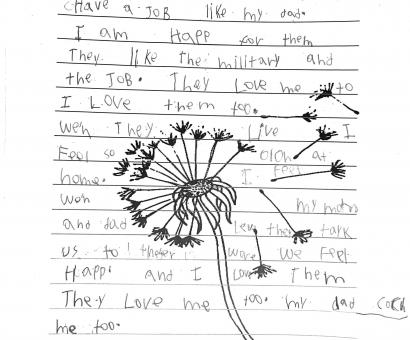 Have a JOB like my dad.
I am Happ for them
They like the military and
the JOB. They Love me to
I LOVE them too.
weh They Live I
Feel so oloh at
home. I Feel
weh my mom
and dad lev they talk
us to! theter wave we Feel
Happi and I Love Them
They Love me too. my dad coch
me too.